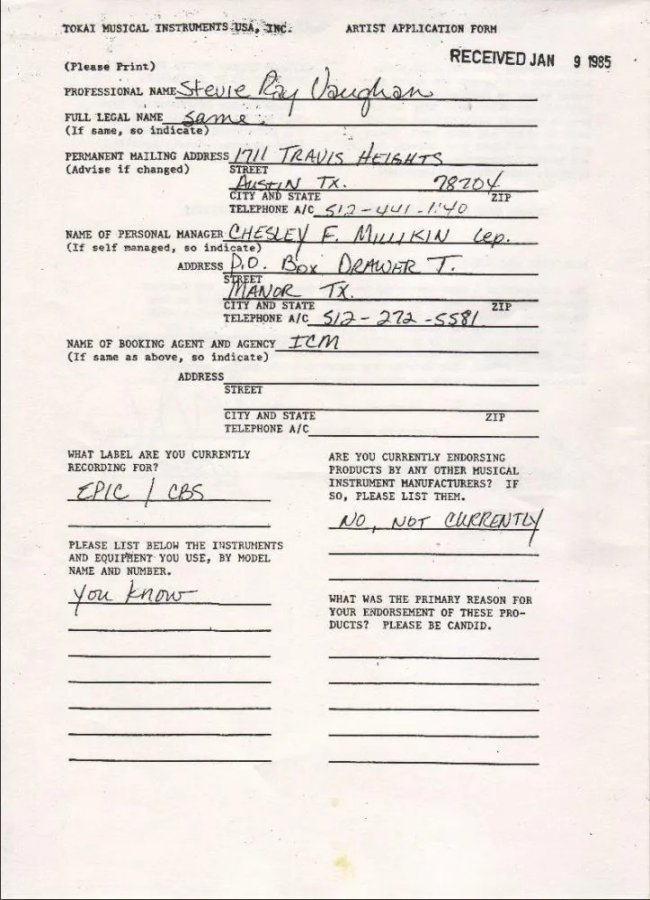 TOKAI MUSICAL INSTRUMENTS USA, INC. ARTIST APPLICATION FORM
RECEIVED JAN 9 1985
(Please Print)
PROFESSIONAL NAME Stevie Ray Vaughan
FULL LEGAL NAME same.
(If same, so indicate)
PERMANENT MAILING ADDRESS 1711 TRAVIS HEIGHTS
(Advise if changed) STREET
AUSTIN TX. 78704
CITY AND STATE ZIP
TELEPHONE A/C 512-441-
NAME OF PERSONAL MANAGER CHESLEY F. MILLIKIN
(If self managed, so indicate)
ADDRESS P.O. Box DRAWER T.
STREET
MANOR TX.
CITY AND STATE ZIP
TELEPHONE A/C 512-272-5581
NAME OF BOOKING AGENT AND AGENCY ICM
(If same as above, so indicate)
ADDRESS
STREET
CITY AND STATE ZIP
TELEPHONE A/C
WHAT LABEL ARE YOU CURRENTLY
RECORDING FOR?
EPIC / CBS
PLEASE LIST BELOW THE INSTRUMENTS
AND EQUIPMENT YOU USE, BY MODEL
NAME AND NUMBER.
you know
ARE YOU CURRENTLY ENDORSING
PRODUCTS BY ANY OTHER MUSICAL
INSTRUMENT MANUFACTURERS? IF
SO, PLEASE LIST THEM.
NO, NOT CURRENTLY
WHAT WAS THE PRIMARY REASON FOR
YOUR ENDORSEMENT OF THESE PRO-
DUCTS? PLEASE BE CANDID.